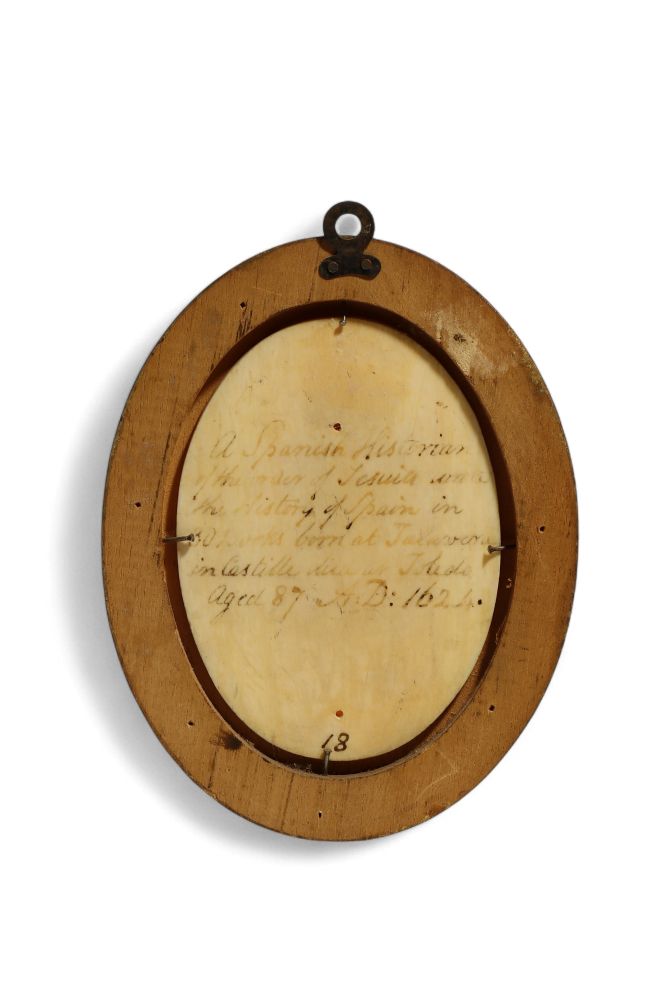 A Spanish Historian
of the order of Jesuits wrote
the History of Spain in
30 Books born at Talavera
in Castille died at Toledo
Aged 87 A: D: 1624.
18